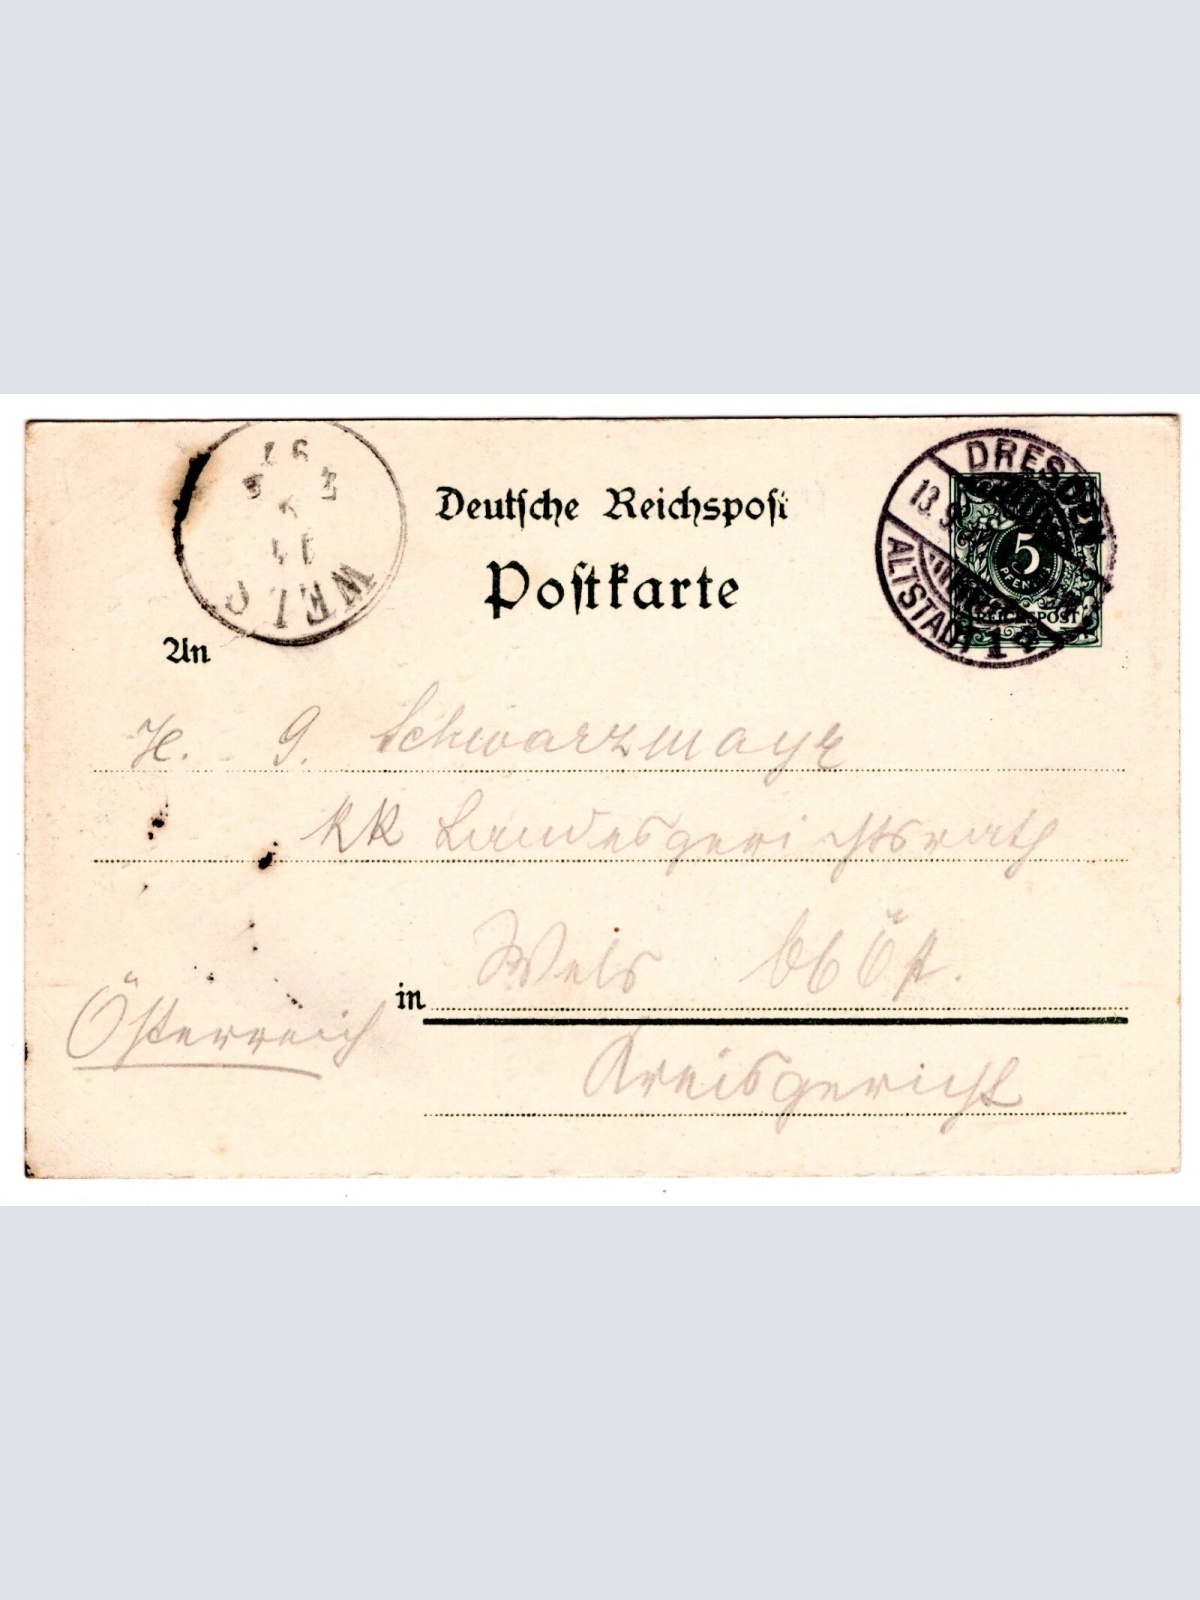 Deutsche Reichspost
Postkarte
An
DRESDEN
13.9.
ALTSTADT 1
5
PFENNIG
REICHSPOST
WELS
14
97
H. G. Schwarzmayr
KK Landesgerichtsrath
in Wels Ob Öst.
Österreich
Kreisgericht